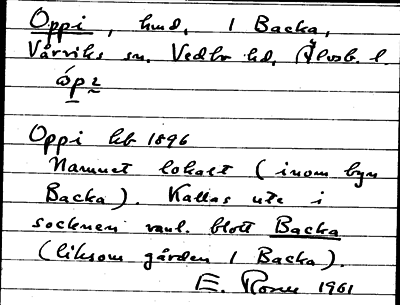 Oppi, hmd, 1 Backa,
Vårviks sn. Vedbo hd, Älvsb. l.
Oppi hb 1896
Namnet lokalt (inom byn
Backa). Kallas ute i
socknen vanl. blott Backa
(liksom gården 1 Backa).
E. 1961